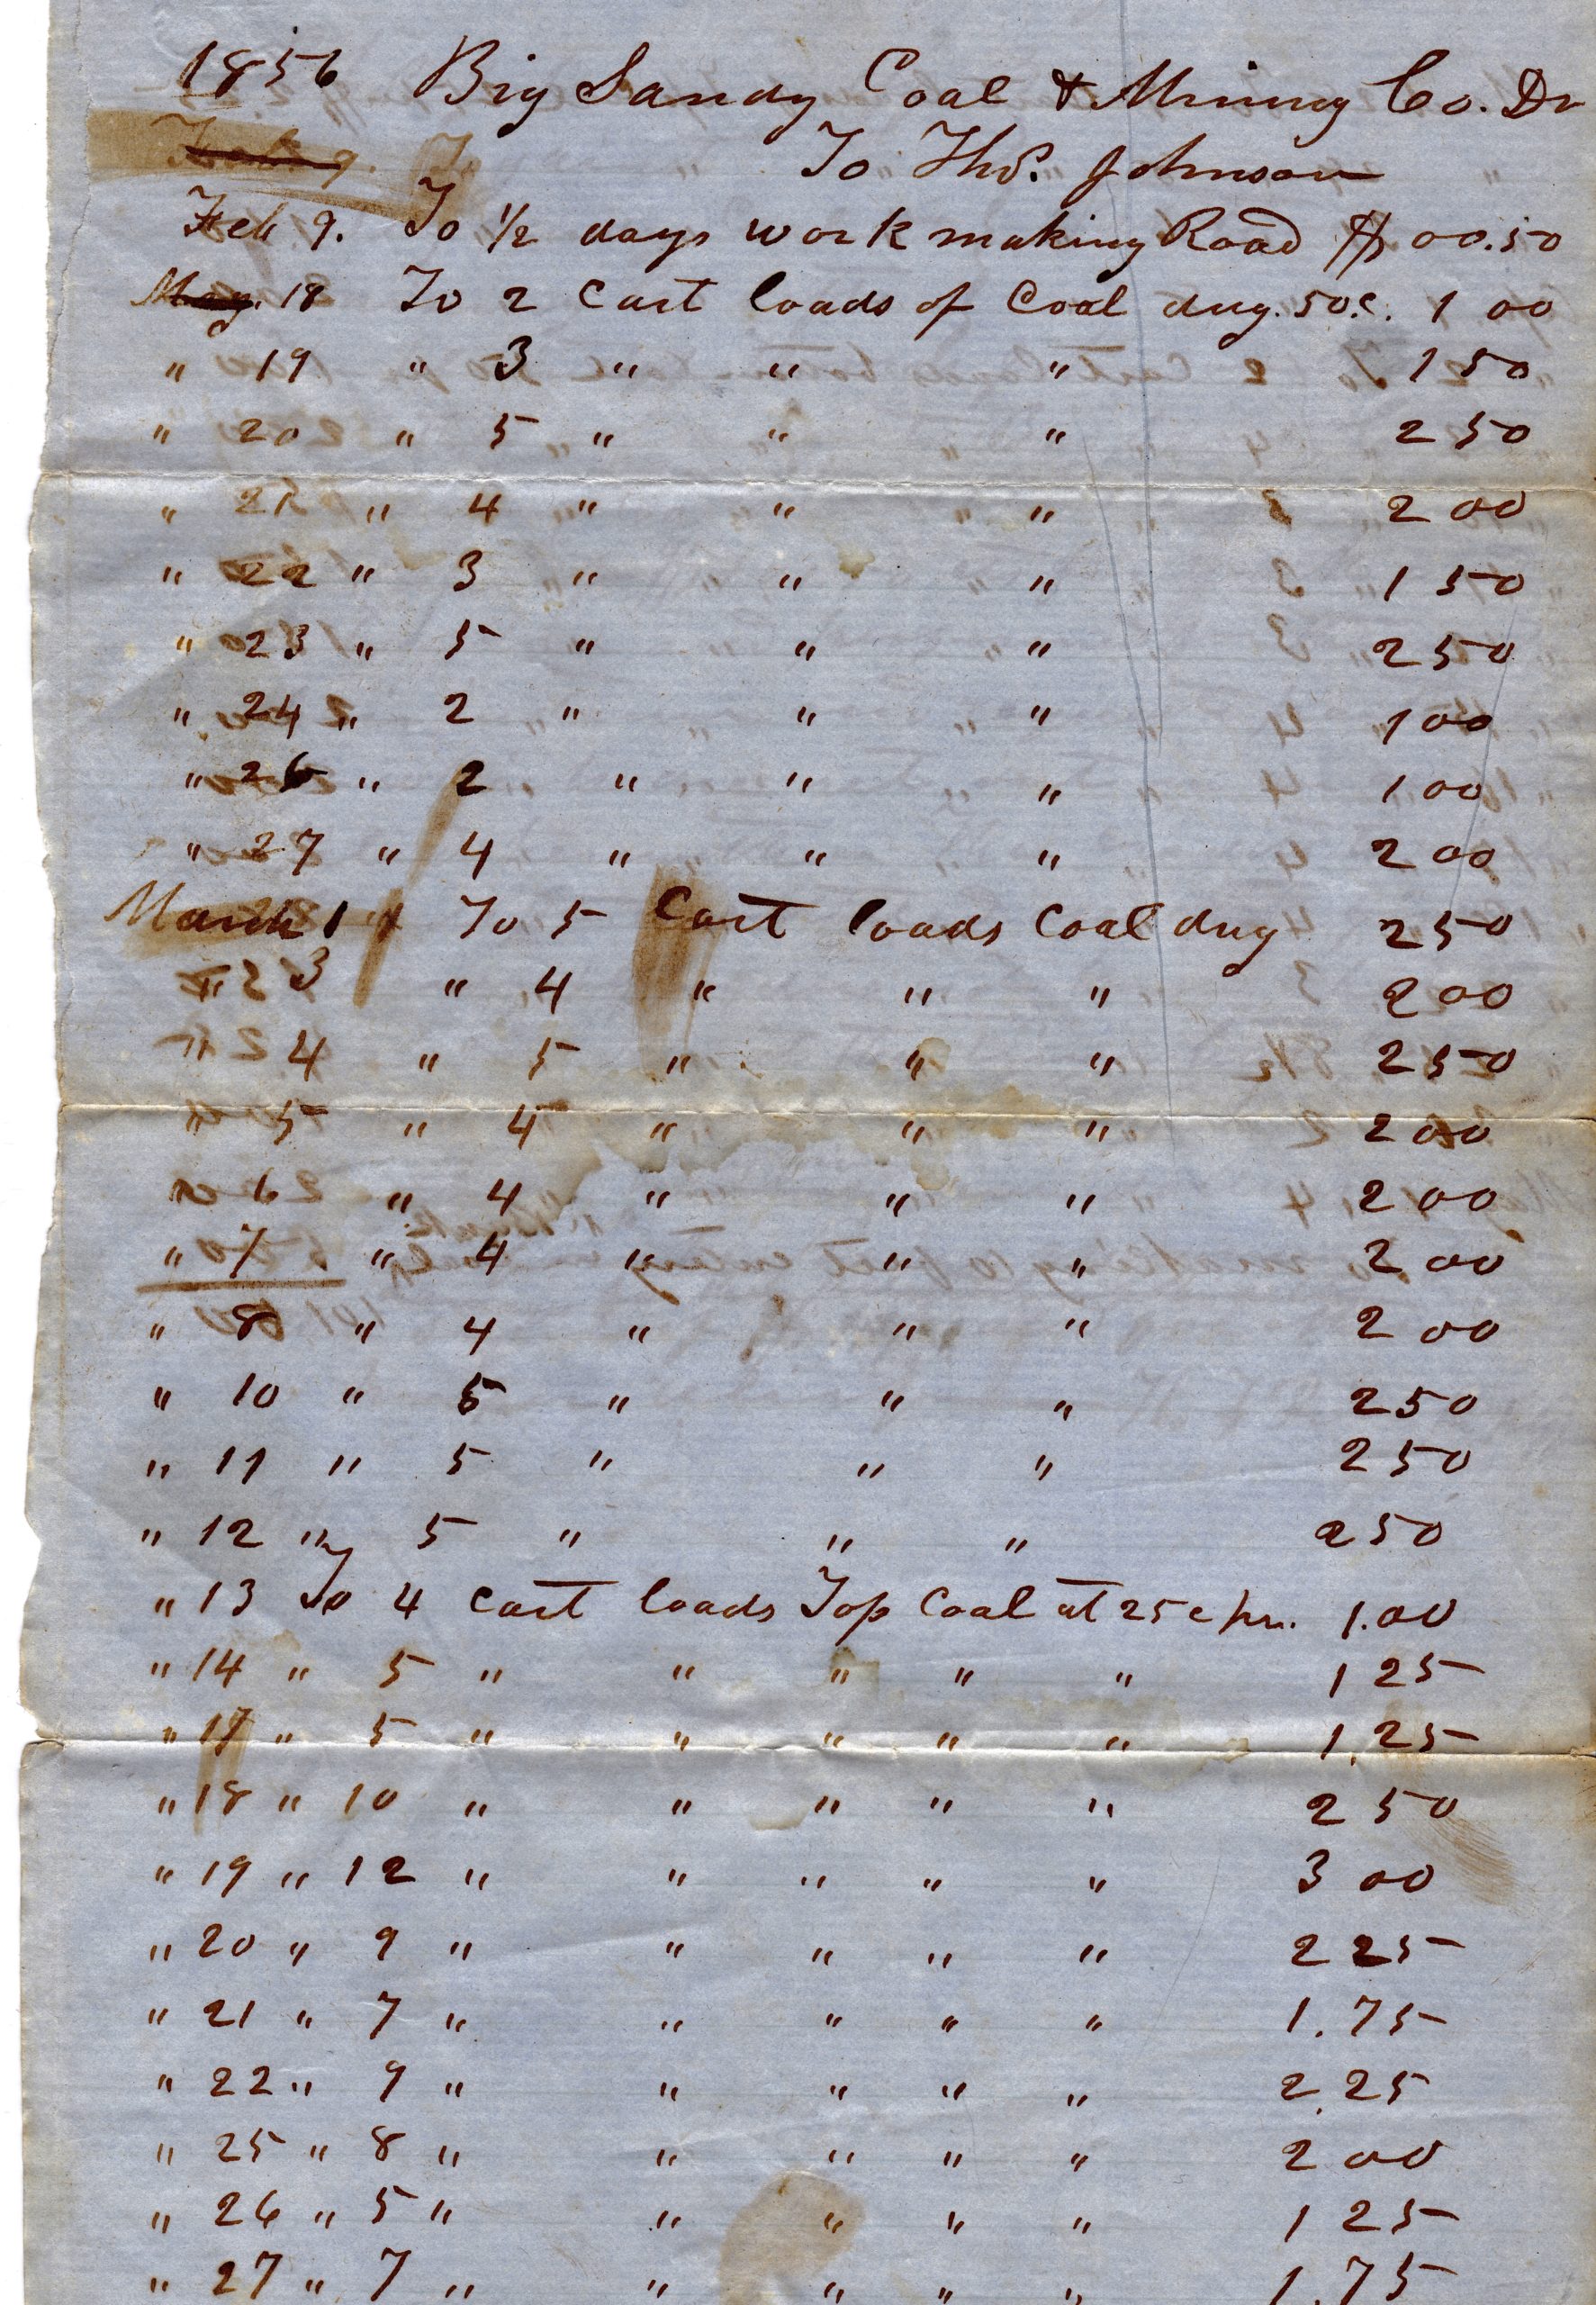 1856 Big Sandy Coal & Mining Co. Dr
Feb 9. To
To Thos. Johnson
Feb 9. To 1/2 days work making Road $ 00.50
May. 18 To 2 Cart loads of Coal dug. 50.c. 1 00
" 19 " 3 " " " 1 50
" 20 " 5 " " " 2 50
" 21 " 4 " " " 2 00
" 22 " 3 " " " 1 50
" 23 " 5 " " " 2 50
" 24 " 2 " " " 1 00
" 26 " 2 " " " 1 00
" 27 " 4 " " " 2 00
March 1 To 5 Cart loads Coal dug 2 50
" 3 " 4 " " " 2 00
4 " 5 " " " 2 50
" 5 " 4 " " " 2 00
6 " 4 " " " 2 00
" 7 " 4 " " " 2 00
" 8 " 4 " " " 2 00
" 10 " 5 " " " 2 50
" 11 " 5 " " " 2 50
" 12 " 5 " " " 2 50
" 13 To 4 Cart loads Top Coal at 25 c pr. 1.00
" 14 " 5 " " " " " 1 25
" 17 " 5 " " " " " 1.25
" 18 " 10 " " " " " 2 50
" 19 " 12 " " " " " 3 00
" 20 " 9 " " " " " 2 25
" 21 " 7 " " " " " 1.75
" 22 " 9 " " " " " 2.25
" 25 " 8 " " " " " 2 00
" 26 " 5 " " " " " 1 25
" 27 " 7 " " " " " 1.75